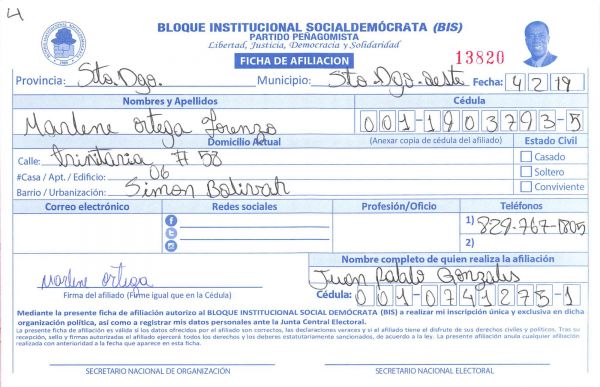 4
BLOQUE INSTITUCIONAL SOCIALDEMÓCRATA (BIS)
PARTIDO PEÑAGOMISTA
Libertad, Justicia, Democracia y Solidaridad
FICHA DE AFILIACION
13820
Provincia: Sto. Dgo. Municipio: Sto. Dgo. oeste Fecha: 4 2 19
Nombres y Apellidos Cédula
Marlene ortega Lorenzo 001-1903793-5
Domicilio Actual (Anexar copia de cédula del afiliado) Estado Civil
Calle: trinitaria # 58 Casado
#Casa / Apt. / Edificio: 06 Soltero
Barrio / Urbanización: Simon Bolivar Conviviente
Correo electrónico Redes sociales Profesión/Oficio Teléfonos
1) 829-767-1805
2)
Nombre completo de quien realiza la afiliación
marlene ortega Juan Pablo Gonzales
Firma del afiliado (Firme igual que en la Cédula) Cédula: 001-0741275-1
Mediante la presente ficha de afiliación autorizo al BLOQUE INSTITUCIONAL SOCIAL DEMÓCRATA (BIS) a realizar mi inscripción única y exclusiva en dicha
organización política, así como a registrar mis datos personales ante la Junta Central Electoral.
La presente ficha de afiliación es válida si los datos ofrecidos por el afiliado son correctos, las declaraciones veraces y si el afiliado tiene el disfrute de sus derechos civiles y políticos. Tras su
recepción, sello y firmas autorizadas el afiliado ejercerá todos los derechos y los deberes estatutariamente sancionados, de acuerdo a la ley. La presente afiliación anula cualquier afiliación
realizada con anterioridad a la fecha que aparece en esta ficha.
SECRETARIO NACIONAL DE ORGANIZACIÓN SECRETARIO NACIONAL ELECTORAL